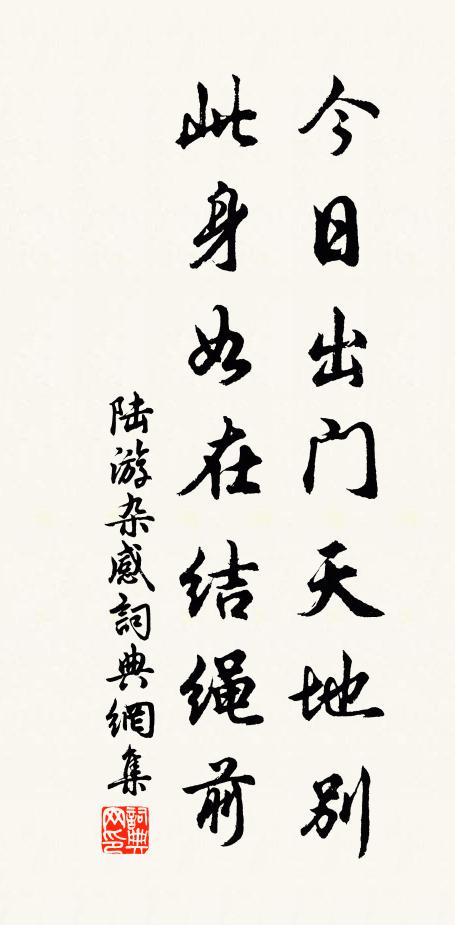 今日出门天地别
此身如在结绳前
陆游杂感詞典網集
詞典网印